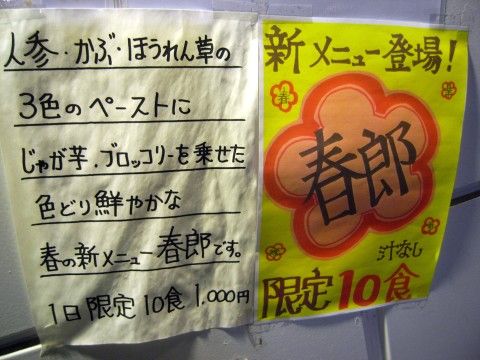 人参・かぶ・ほうれん草の
3色のペーストに
じゃが芋、ブロッコリーを乗せた
色どり鮮やかな
春の新メニュー春郎です。
1日限定10食 1,000円
新メニュー登場!
春
春郎
汁なし
限定10食